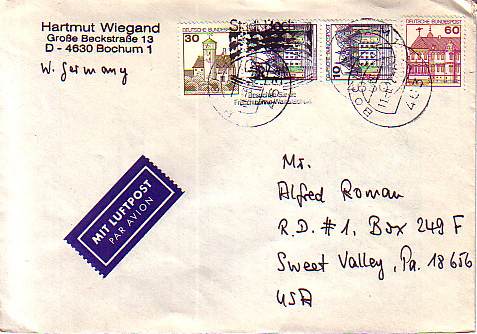 Hartmut Wiegand
Große Beckstraße 13
D - 4630 Bochum 1
W. Germany
30
DEUTSCHE BUNDESPOST
10
DEUTSCHE BUNDESPOST
60
MIT LUFTPOST
PAR AVION
Mr.
Alfred Roman
R.D. #1, Box 249 F
Sweet Valley, Pa. 18656
USA